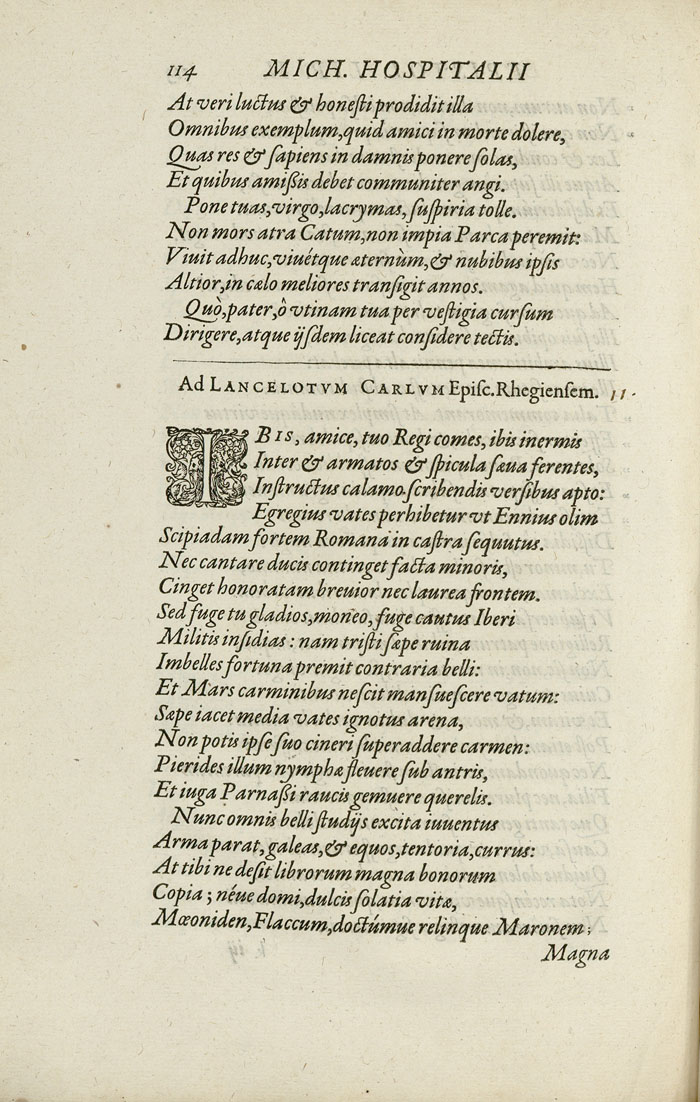 114 MICH. HOSPITALII
At veri luctus & honesti prodidit illa
Omnibus exemplum, quid amici in morte dolere,
Quas res & sapiens in damnis ponere solas,
Et quibus amißis debet communiter angi.
Pone tuas, virgo, lacrymas, suspiria tolle.
Non mors atra Catum, non impia Parca peremit:
Viuit adhuc, viuétque æternùm, & nubibus ipsis
Altior, in cælo meliores transigit annos.
Quò, pater, ô vtinam tua per vestigia cursum
Dirigere, atque ijsdem liceat considere tectis.
Ad LANCELOTVM CARLVM Episc. Rhegiensem. 11.
IBIS, amice, tuo Regi comes, ibis inermis
Inter & armatos & spicula sæua ferentes,
Instructus calamo scribendis versibus apto:
Egregius vates perhibetur vt Ennius olim
Scipiadam fortem Romana in castra sequutus.
Nec cantare ducis continget facta minoris,
Cinget honoratam breuior nec laurea frontem.
Sed fuge tu gladios, moneo, fuge cautus Iberi
Militis insidias: nam tristi sæpe ruina
Imbelles fortuna premit contraria belli:
Et Mars carminibus nescit mansuescere vatum:
Sæpe iacet media vates ignotus arena,
Non potis ipse suo cineri superaddere carmen:
Pierides illum nymphæ fleuere sub antris,
Et iuga Parnaßi raucis gemuere querelis.
Nunc omnis belli studijs excita iuuentus
Arma parat, galeas, & equos, tentoria, currus:
At tibi ne desit librorum magna bonorum
Copia; néue domi, dulcis solatia vitæ,
Mœoniden, Flaccum, doctúmue relinque Maronem;
Magna